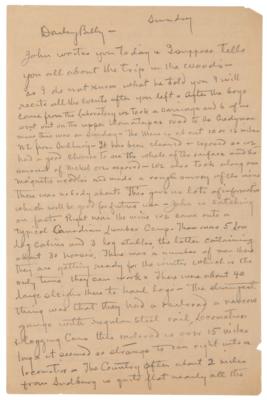 Sunday
Darling Billy —
John writes you today & I suppose tells
you all about the trip in the woods —
as I do not know what he told you I will
recite all the events after you left. After the boys
came from the Laboratory we took a carriage and 6 of us
went out on the upper road to the
mine there on Sunday. The Mine is at out 10 or 12 miles
NE from Sudbury. It has been cleaned & exposed so we
had a good chance to see the whole of the surface and the
amount of Nickel ore exposed — We also took along our
magnetic needles and made a rough survey of the mine
There was nobody about. This gave us lots of information
which will be good for future use — John is catching
on fast. Right near the mine we came onto a
typical Canadian Lumber Camp. There was 5 Log
Log Cabins and 3 log stables, the latter containing
about 30 horses, There was a number of men here
they are getting ready for the winter which is the
only time they can work — There was about 40
large sleighs there to haul logs — The strangest
thing was that they had a railroad a narrow
gauge with regular steel rail, locomotive
& Logging Cars this railroad is over 15 miles
long it seemed so strange to run right into a
locomotive — The Country after about 2 miles
from Sudbury is quite flat nearly all the